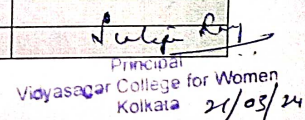 Principal
Vidyasagar College for Women
Kolkata 21/03/24